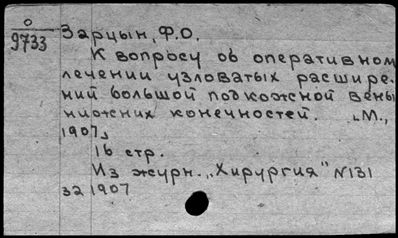 0
9733
Зарцын, Ф.О.
К вопросу об оперативном
лечении узловатых расшире-
ний большой подкожной вены
нижних конечностей. "М.,
1907"
16 стр.
Из журн. "Хирургия" №131
32 1907